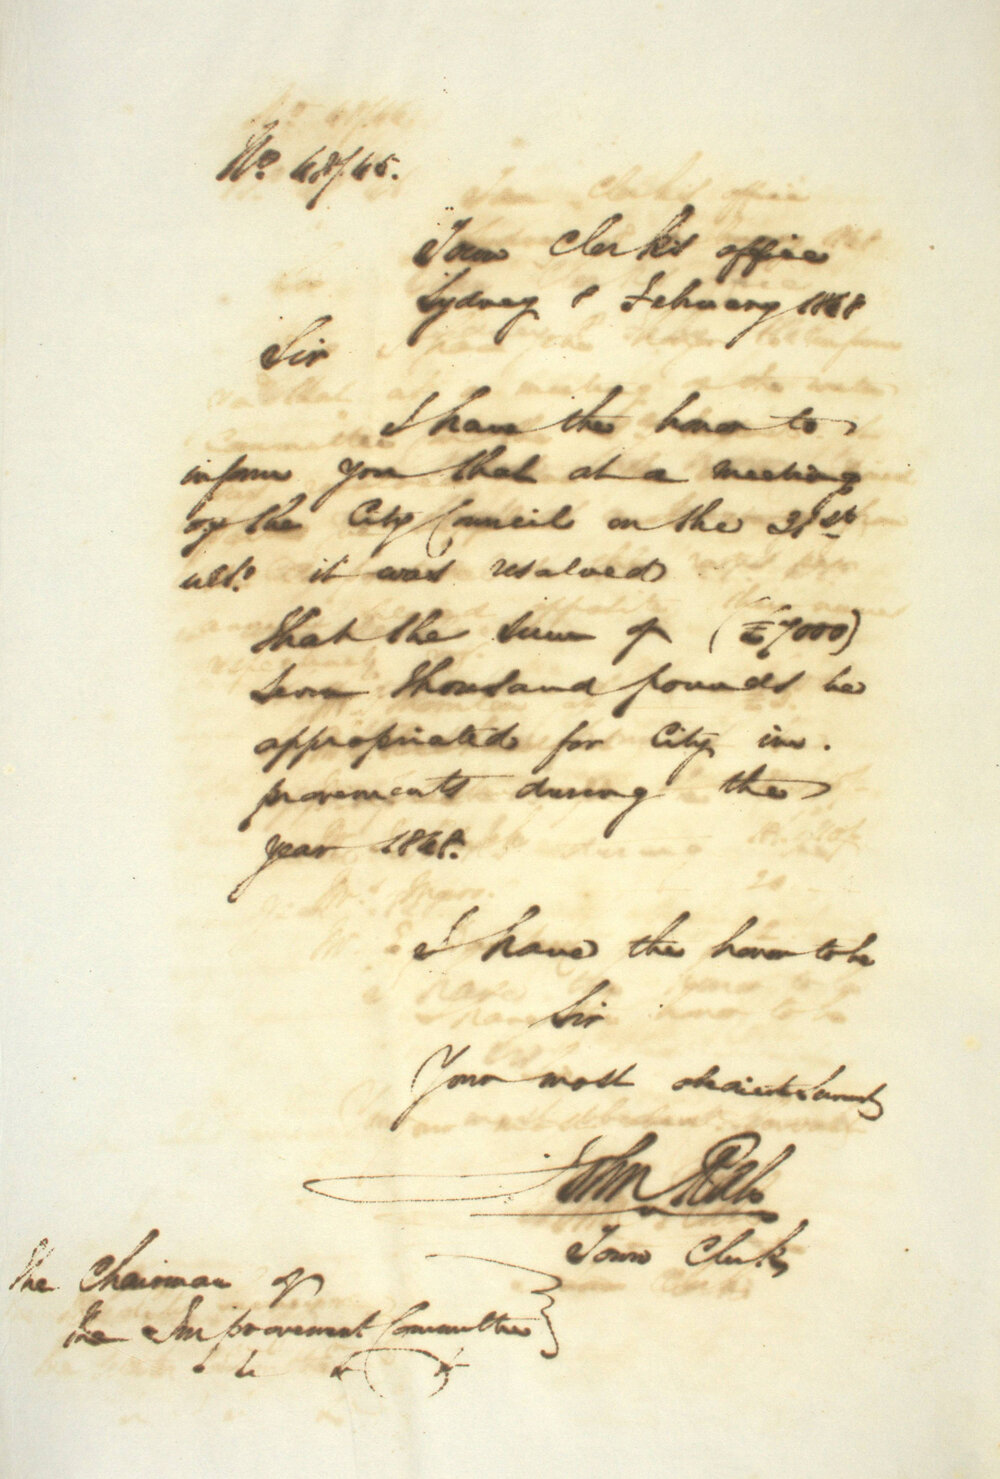 No. 48/45.
Town Clerk's office
Sydney 8 February 1868
Sir
I have the honor to
inform you that at a meeting
of the City Council on the 31st
ulto. it was resolved
That the sum of (£7000)
seven thousand pounds be
appropriated for City im-
provements during the
year 1868.
I have the honor to be
Sir
Your most obedient Servant
John
Town Clerk
The Chairman of
the Improvement Committee